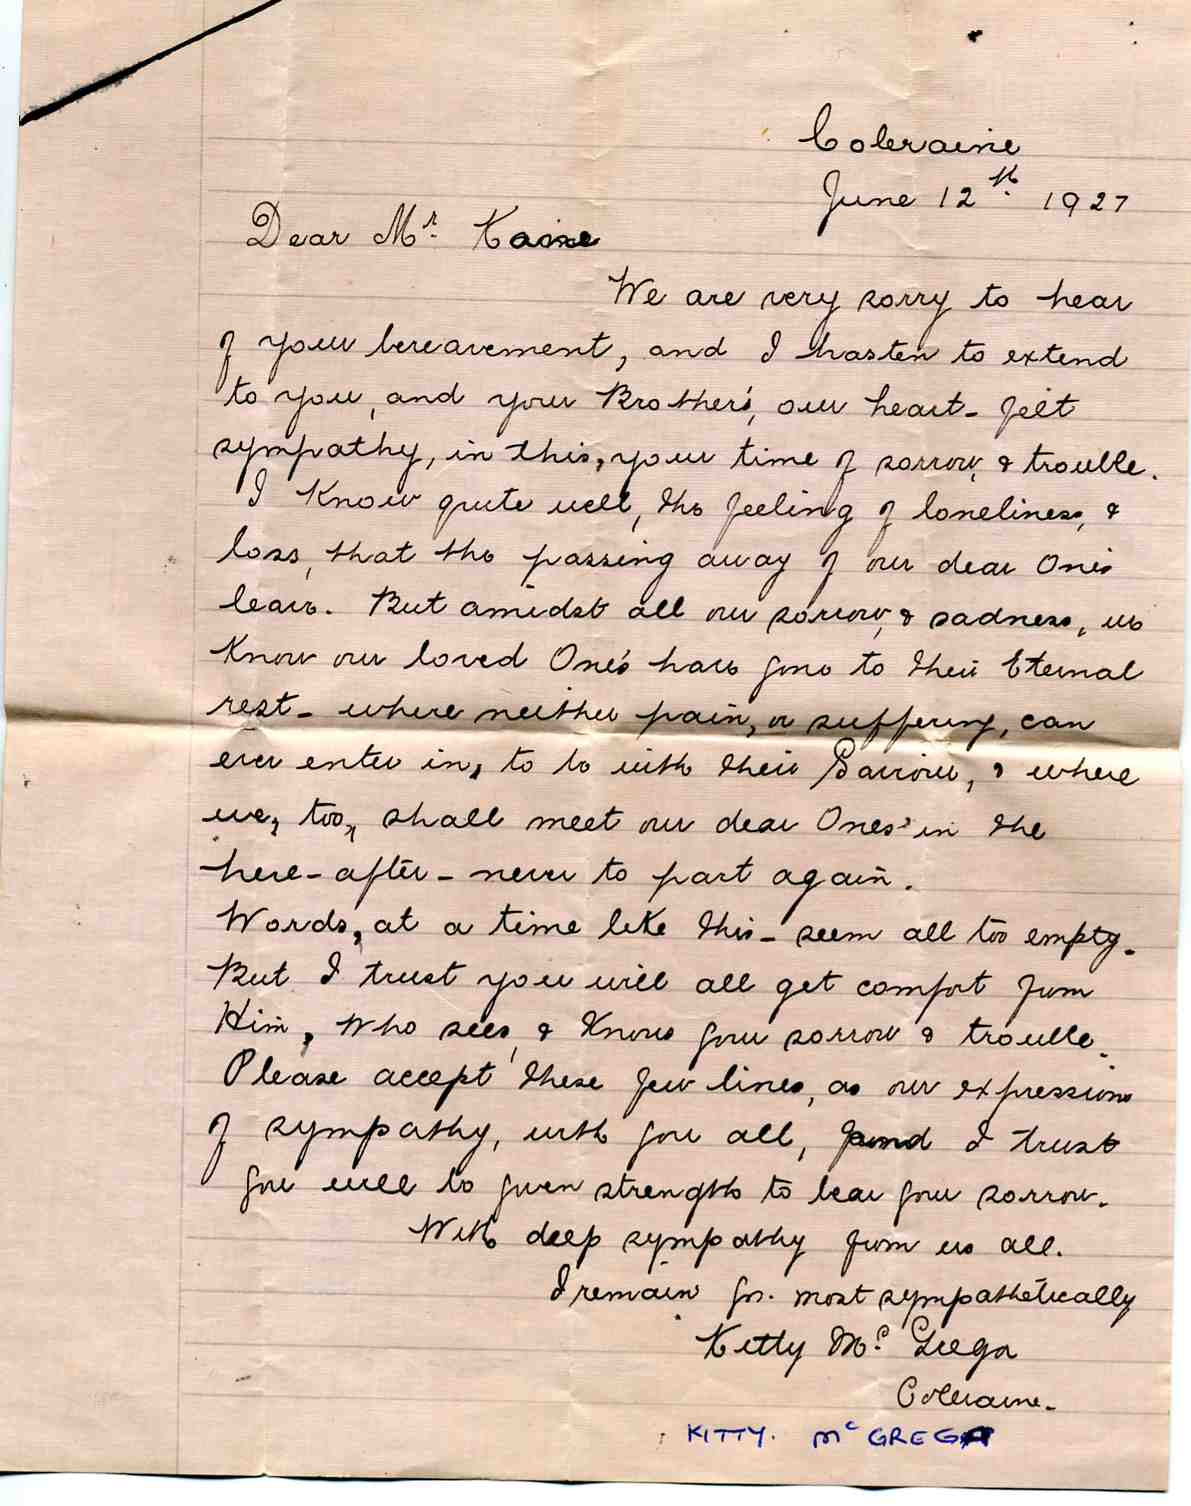 Coleraine
June 12th. 1927
Dear Mr. Kaine
We are very sorry to hear
of your bereavement, and I hasten to extend
to you, and your Brother's, our heart-felt
sympathy, in this, your time of sorrow, & trouble.
I know quite well, the feeling of loneliness, &
loss, that the passing away of our dear One's
leave. But amidst all our sorrow, & sadness, we
know our loved One's have gone to their Eternal
rest - where neither pain, or suffering, can
ever enter in, to be with their Saviour, & where
we, too, shall meet our dear Ones' in the
here-after - never to part again.
Words, at a time like this - seem all too empty.
But I trust you will all get comfort from
Him, Who sees, & Knows your sorrow & trouble.
Please accept these few lines, as our expressions
of sympathy, with you all, and I trust
you will be given strength to bear your sorrow.
With deep sympathy from us all.
I remain yrs. most sympathetically
Kitty Mc Gregor
Coleraine.
KITTY. Mc GREGOR